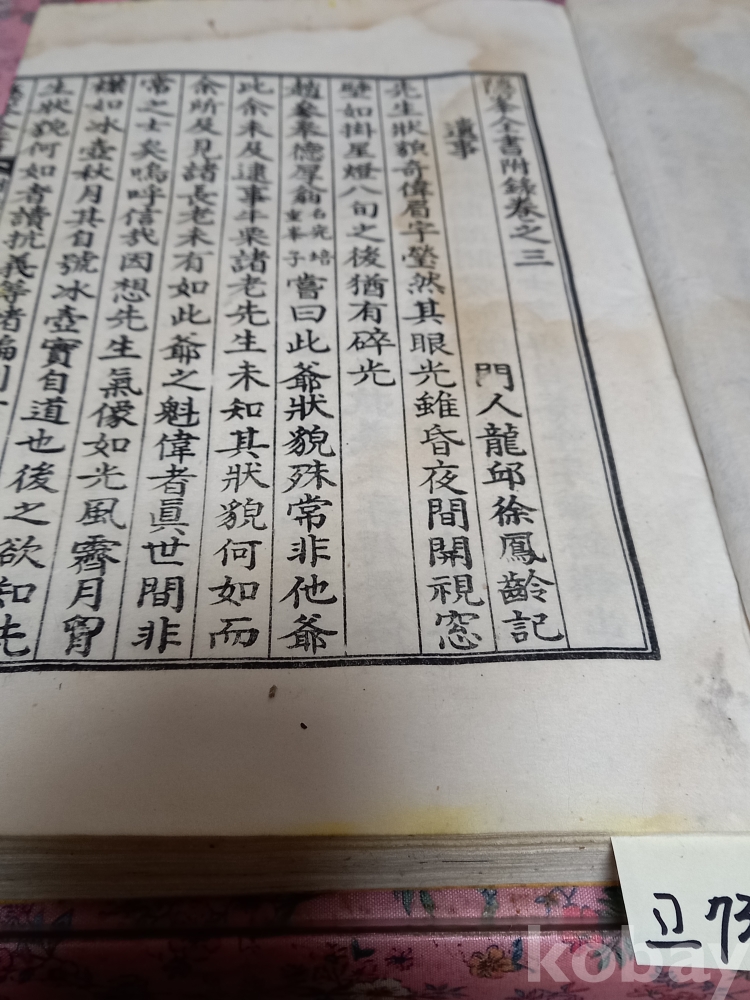 隱峯全書附錄卷之三
遺事 門人龍邱徐鳳齡記
先生狀貌奇偉眉宇瑩然其眼光雖昏夜間開視窓
壁如掛星燈八旬之後猶有碎光
趙參奉德厚翁名光培重峯子嘗曰此爺狀貌殊常非他爺
比余未及逮事牛栗諸老先生未知其狀貌何如而
余所及見諸長老未有如此爺之魁偉者眞世間非
常之士矣嗚呼信哉因想先生氣像如光風霽月胷
襟如冰壺秋月其自號冰壺實自道也後之欲知先
生狀貌何如者讀抗義等諸編則
고 73
kobay